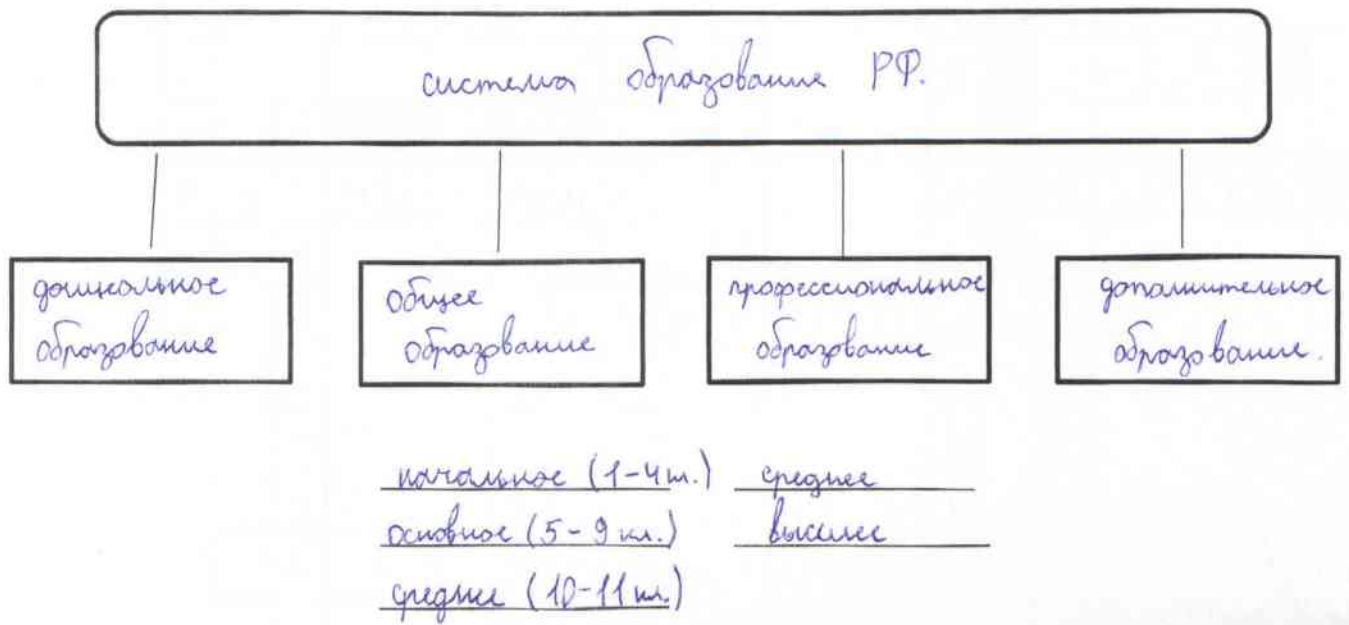 система образование РФ.
дошкольное
образование
общее
образование
профессиональное
образование
дополнительное
образование.
начальное (1-4 кл.)
основное (5-9 кл.)
среднее (10-11 кл.)
среднее
высшее